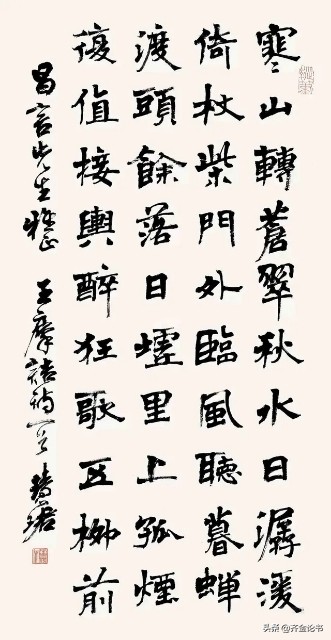 寒山轉蒼翠秋水日潺湲
倚杖柴門外臨風聽暮蝉
渡頭餘落日墟里上孤煙
復值接輿醉狂歌五柳前
昌言先生雅正 王摩詰詩一首
头条 @齐金论书